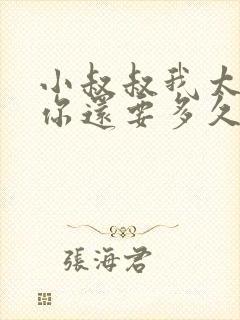 小叔叔我太
你還要多久
張海君